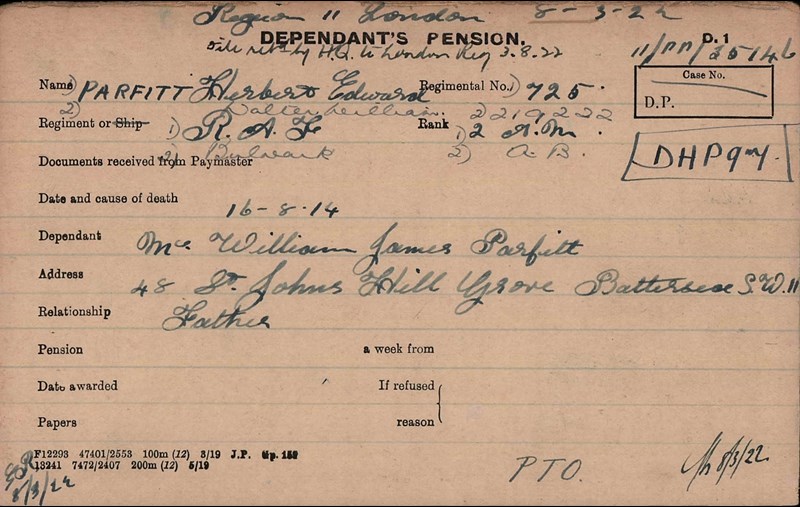 Region 11 London 8-3-22
DEPENDANT'S PENSION. D.1
File retd by H.Q. to London Reg 3.8.22 11/
Name 1) PARFITT Herbert Edward Regimental No. 1) 725.
2) Walter William. 2) 219222
Case No.
D.P.
Regiment or Ship 1) R. A. F Rank 1) 2 A.M.
2) Bulwark 2) A. B.
DHP
Documents received from Paymaster
Date and cause of death
16-8-14
Dependant Mr William James Parfitt
Address 48 St. Johns Hill Grove Battersea S.W. 11
Relationship Father
Pension a week from
Date awarded If refused
Papers reason
F12293 47401/2553 100m (12) 3/19 J.P. Gp. 152
13241 7472/2407 200m (12) 5/19
8/3/22
PTO.
8/3/22